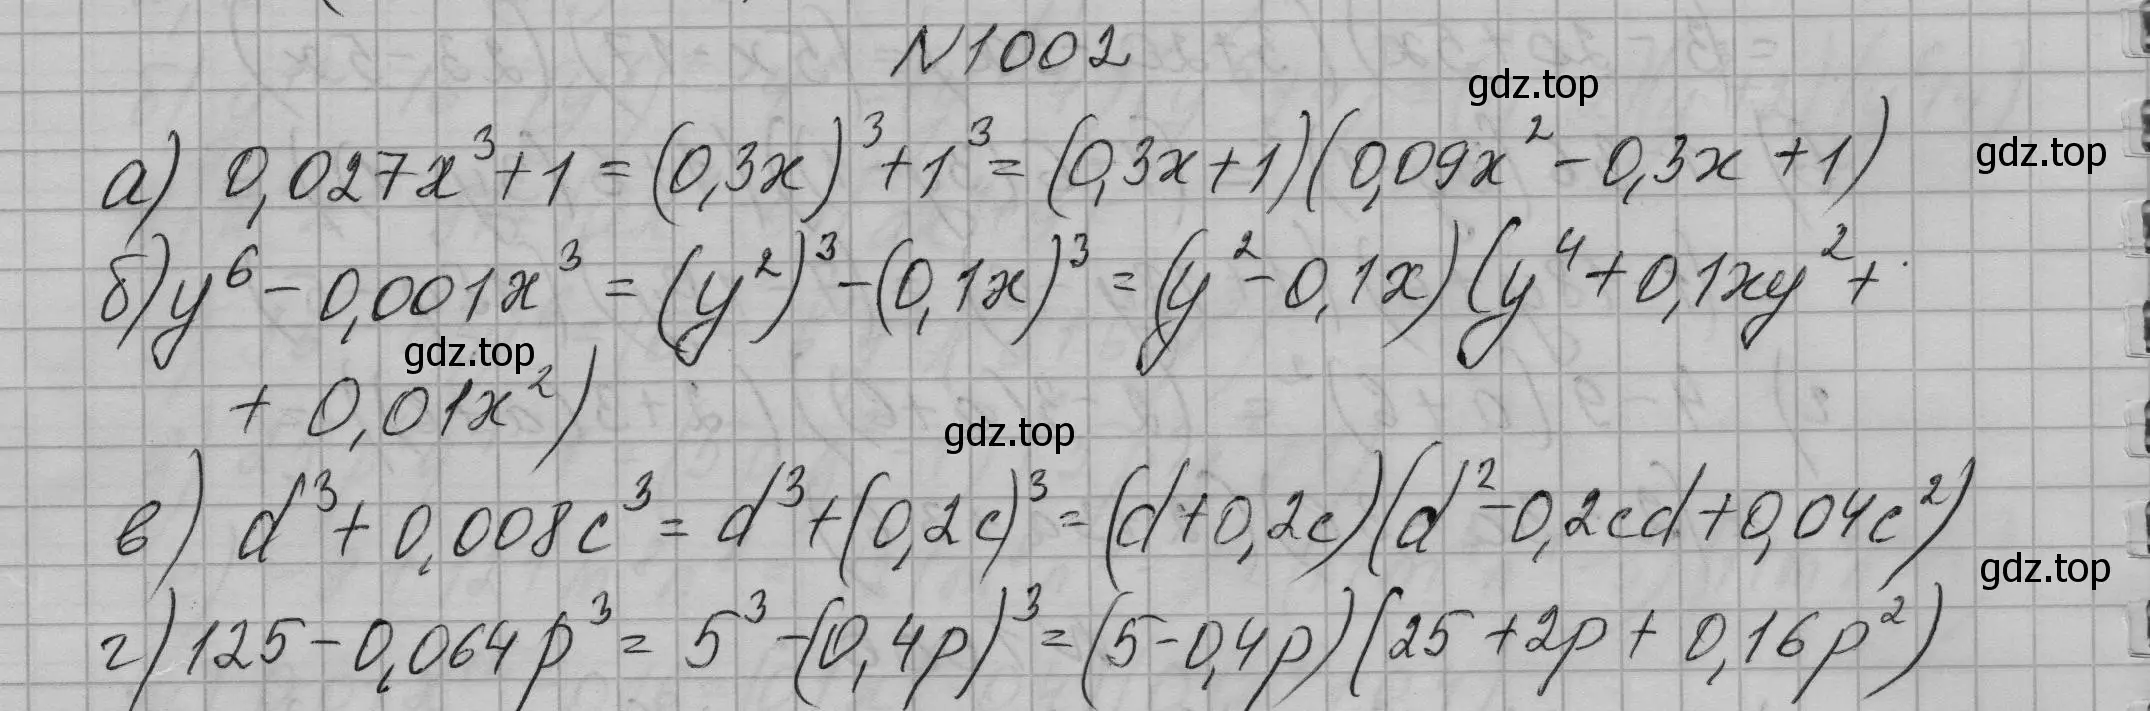 N1002
gdz.top
а) 0,027x³+1=(0,3x)³+1³=(0,3x+1)(0,09x²-0,3x+1)
gdz.top
б) y⁶-0,001x³=(y²)³-(0,1x)³=(y²-0,1x)(y⁴+0,1xy²+
gdz.top
+0,01x²)
gdz.top
в) d³+0,008c³=d³+(0,2c)³=(d+0,2c)(d²-0,2cd+0,04c²)
gdz.top
г) 125-0,064p³=5³-(0,4p)³=(5-0,4p)(25+2p+0,16p²)